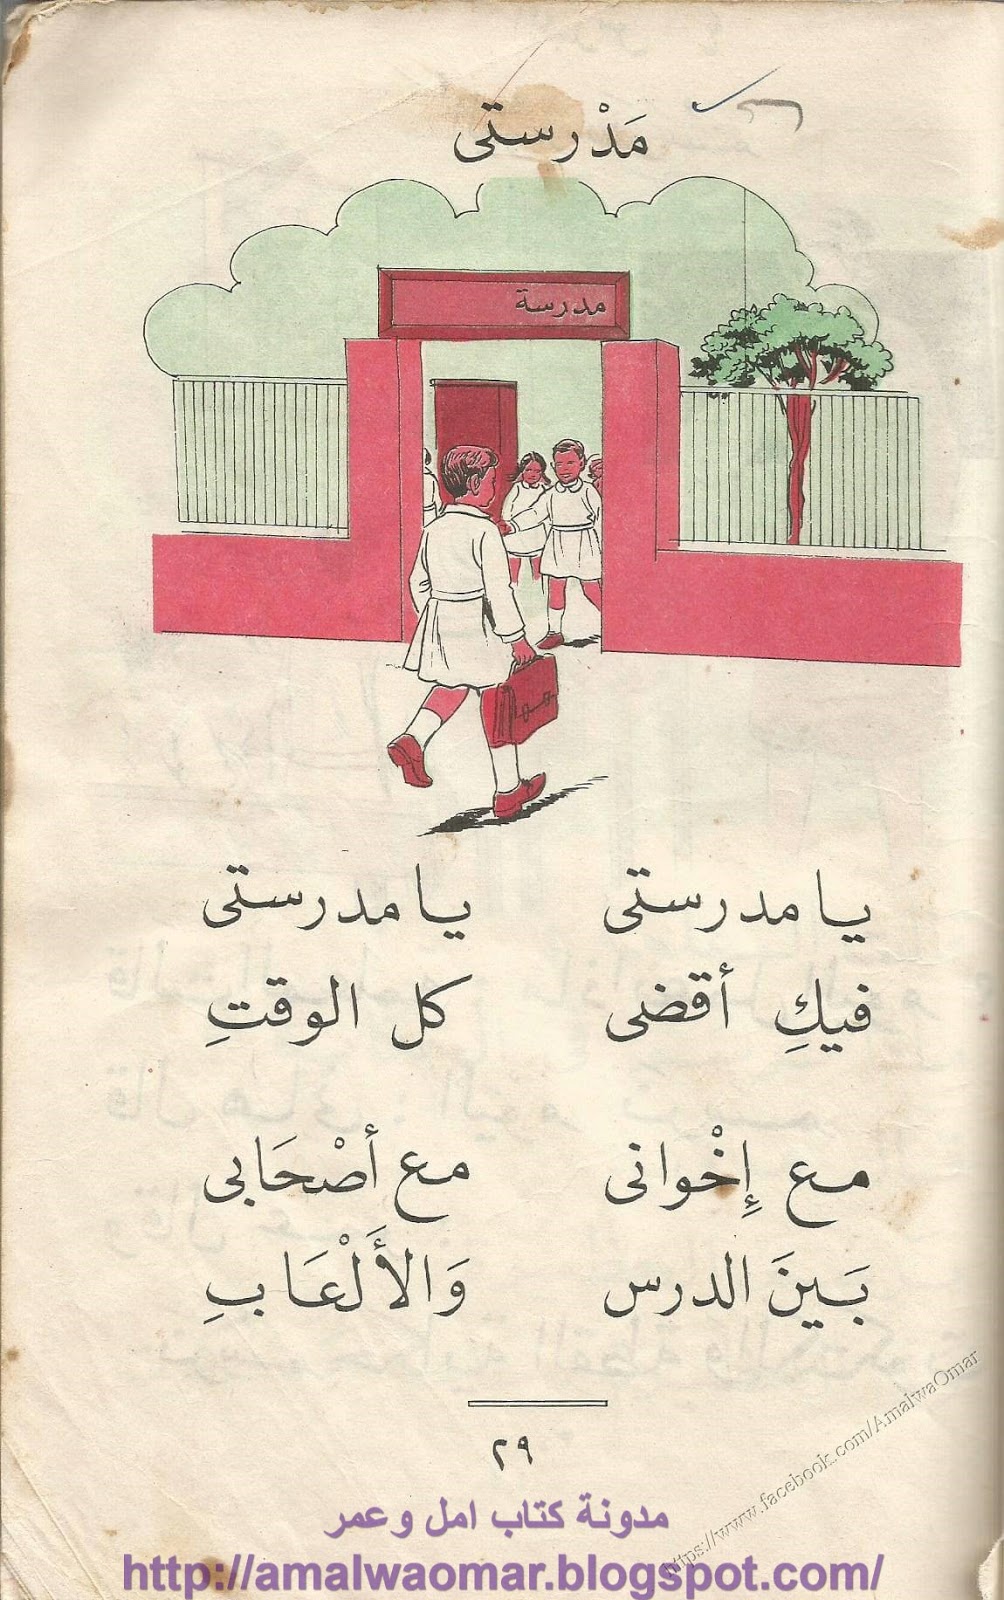 مَدْرستى
مدرسة
يا مدرستى يا مدرستى
فيكِ أقضى كل الوقتِ
مع إِخْوانى مع أصْحَابى
بَينَ الدرس وَالأَلْعَابِ
٢٩
https://www.facebook.com/AmalwaOmar
مدونة كتاب امل وعمر
http://amalwaomar.blogspot.com/